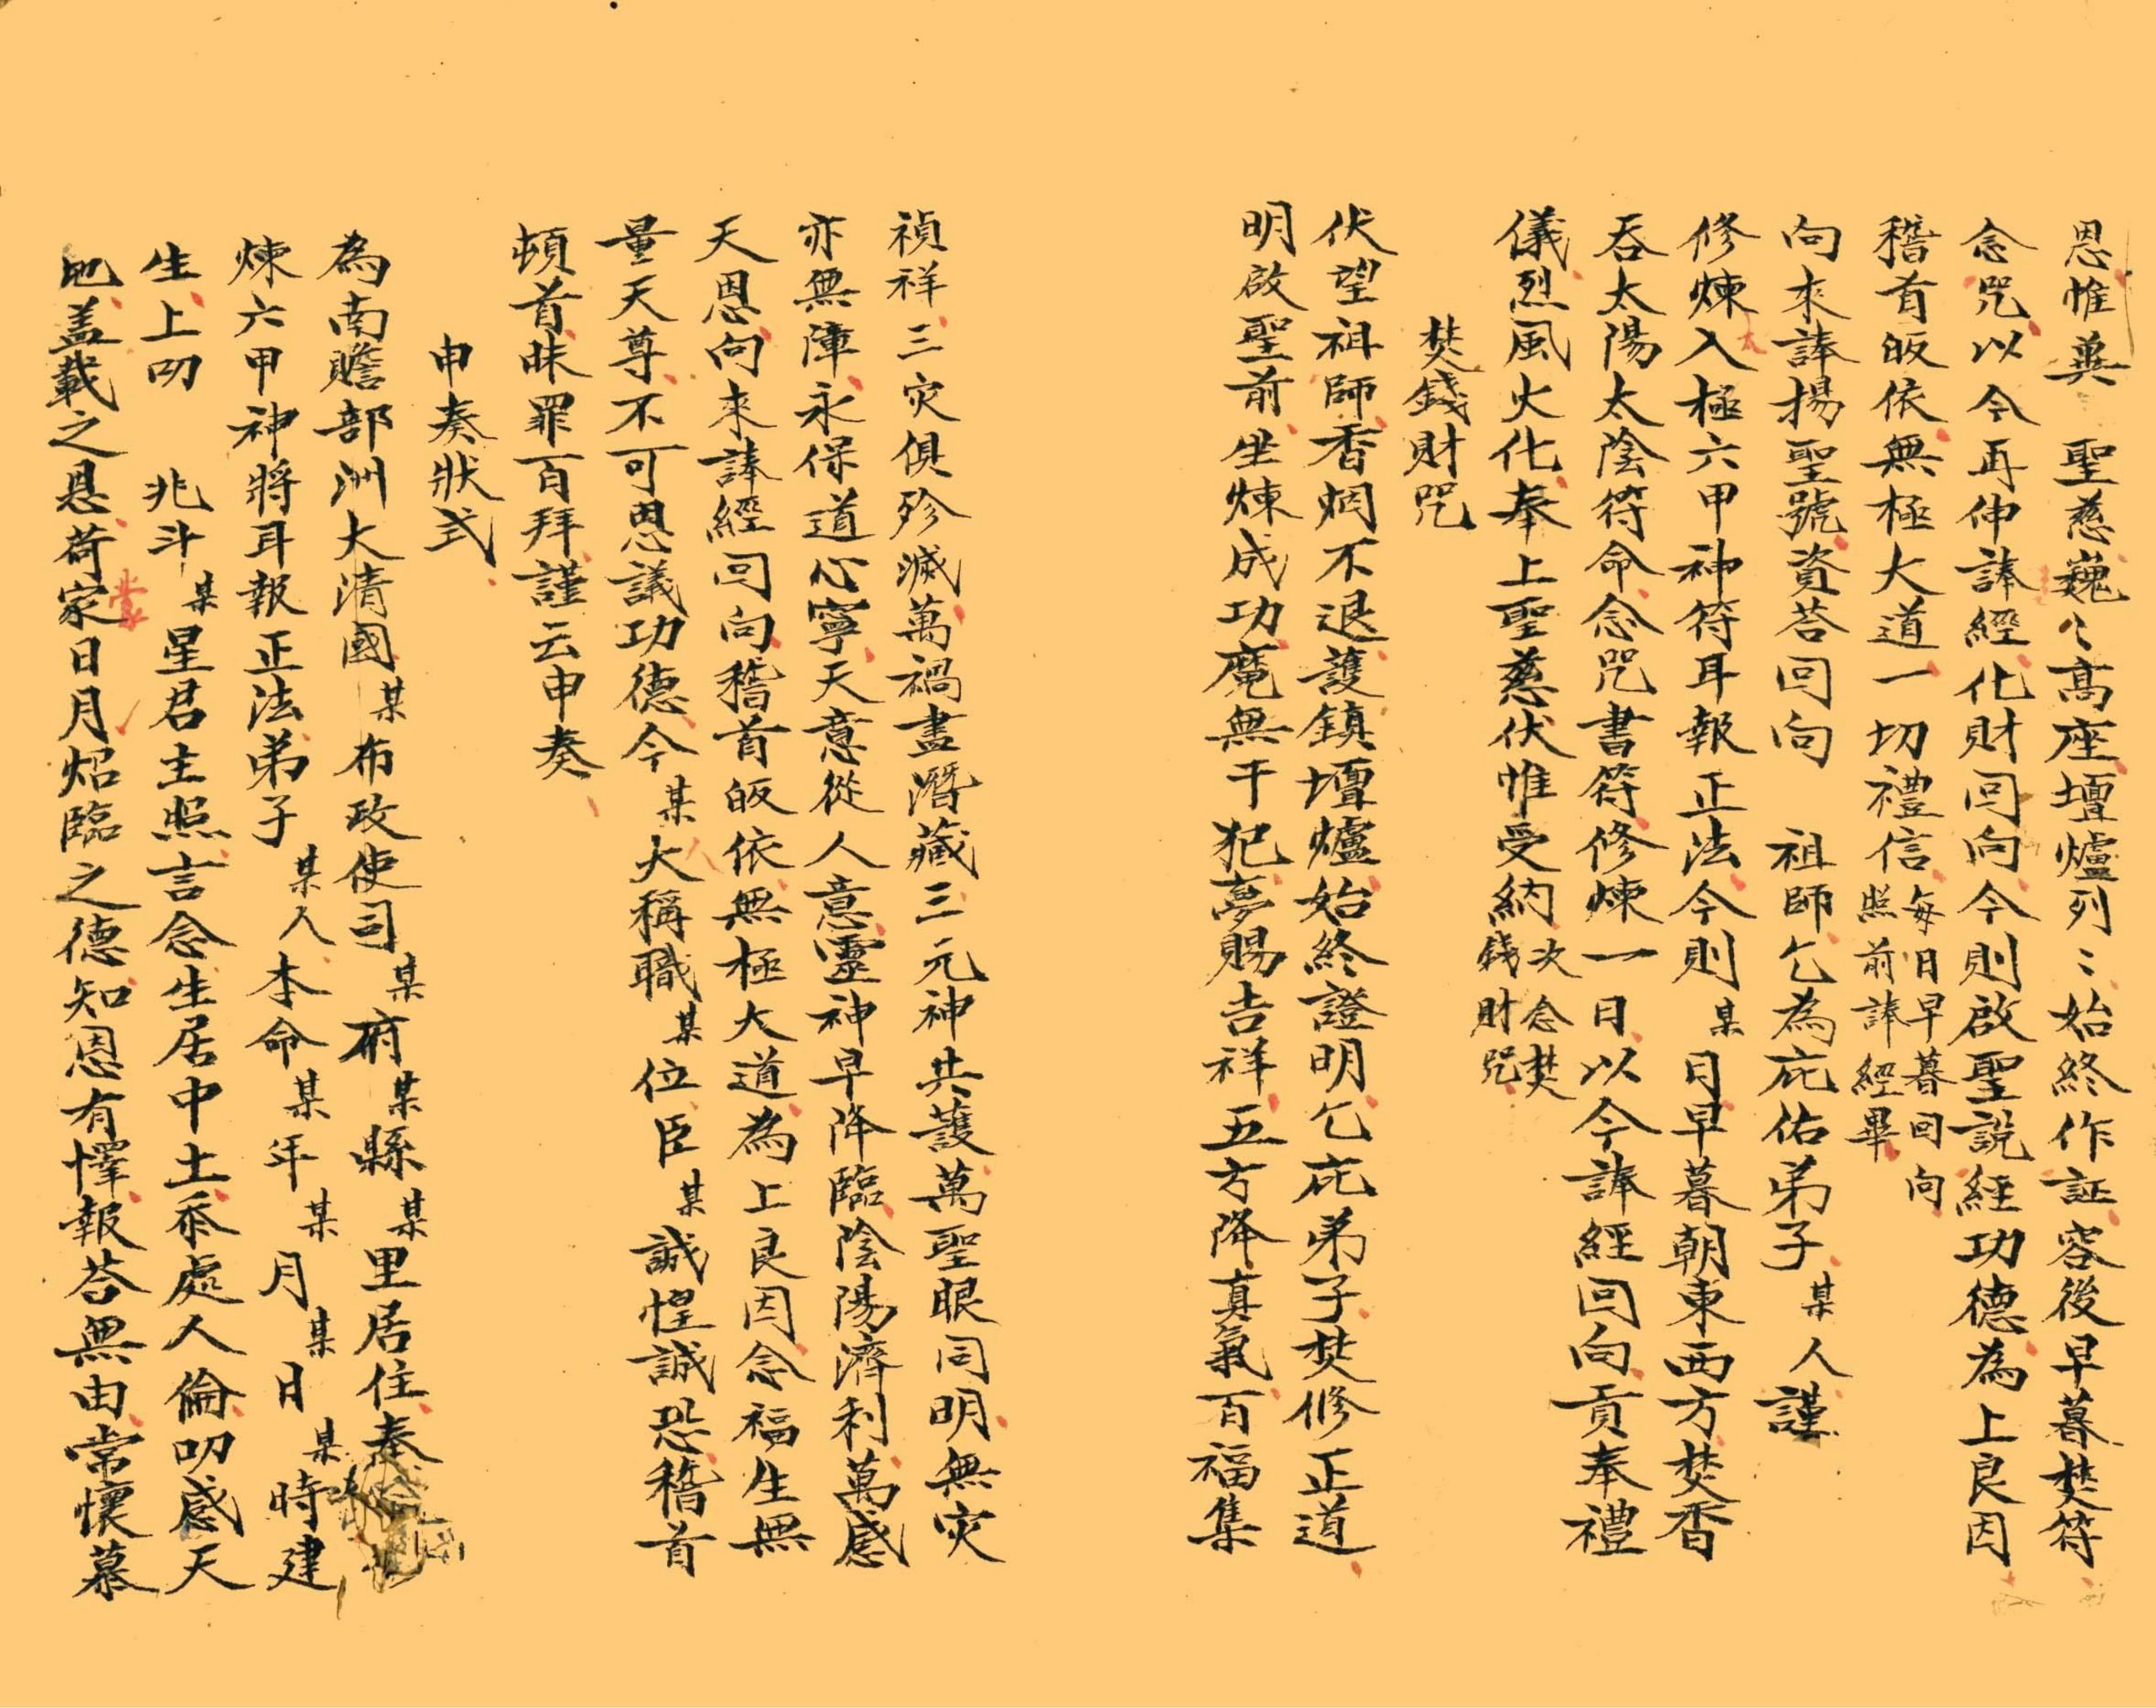 恩惟冀　聖慈巍〻高座壇爐列〻始終作証容後早暮焚符
念咒以今再伸誦經化財回向今則啟聖説經功德為上良因
稽首皈依無極大道一切禮信每日早暮回向照前誦經畢
向來誦揚聖號資荅回向　祖師乞為庇佑弟子某人謹
修煉入太極六甲神符耳報正法今則某日早暮朝東西方焚香
吞太陽太陰符命念咒書符修煉一日以今誦經回向貢奉禮
儀烈風火化奉上聖慈伏惟受納次念焚錢財咒
焚錢財咒
伏望祖師香烟不退護鎮壇爐始終證明乞庇弟子焚修正道
明啟聖前坐煉成功魔無干犯夢賜吉祥五方降真氣百福集
禎祥三灾俱殄滅萬禍盡潛藏三元神共護萬聖眼同明無灾
亦無障永保道心寧天意從人意靈神早降臨陰陽濟利萬感
天恩向來誦經回向稽首皈依無極大道為上良因念福生無
量天尊不可思議功德今某人大稱職某位臣某誠惶誠恐稽首
頓首昧罪百拜謹云申奏
申奏狀式
為南贍部洲大清國某布政使司某府某縣某里居住奉
煉六甲神將耳報正法弟子某人本命某年某月某日某時建
生上叨　北斗某星君主照言念生居中土忝處人倫叨感天
地盖載之恩荷蒙日月炤臨之德知恩有懌報荅無由常懷慕